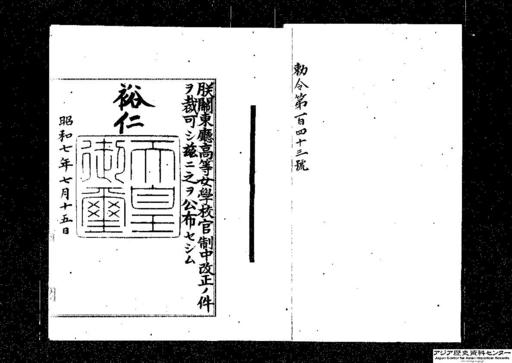 勅令第百四十三號
朕關東廳高等女學校官制中改正ノ件
ヲ裁可シ茲ニ之ヲ公布セシム
裕仁
天皇
御璽
昭和七年七月十五日
アジア歴史資料センター
Japan Center for Asian Historical Records